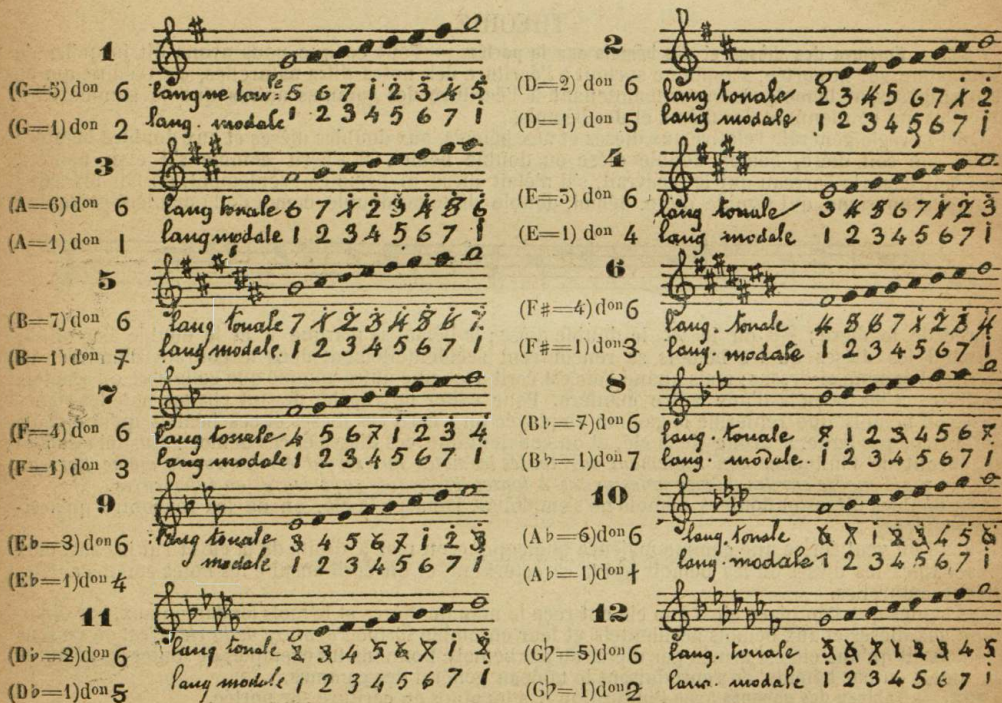 1
(G=5) don 6 langue tonle 5 6 7 1 2 3 4 5
(G=1) don 2 lang. modale 1 2 3 4 5 6 7 1
2
(D=2) don 6 lang tonale 2 3 4 5 6 7 1 2
(D=1) don 5 lang modale 1 2 3 4 5 6 7 1
3
(A=6) don 6 lang tonale 6 7 1 2 3 4 5 6
(A=1) don 1 lang modale 1 2 3 4 5 6 7 1
4
(E=3) don 6 lang tonale 3 4 5 6 7 1 2 3
(E=1) don 4 lang modale 1 2 3 4 5 6 7 1
5
(B=7) don 6 lang tonale 7 1 2 3 4 5 6 7
(B=1) don 7 lang modale. 1 2 3 4 5 6 7 1
6
(F#=4) don 6 lang. tonale 4 5 6 7 1 2 3 4
(F#=1) don 3 lang. modale 1 2 3 4 5 6 7 1
7
(F=4) don 6 lang tonale 4 5 6 7 1 2 3 4
(F=1) don 3 lang modale 1 2 3 4 5 6 7 1
8
(B♭=7) don 6 lang. tonale 7 1 2 3 4 5 6 7
(B♭=1) don 7 lang. modale. 1 2 3 4 5 6 7 1
9
(E♭=3) don 6 lang tonale 3 4 5 6 7 1 2 3
(E♭=1) don 4 modale 1 2 3 4 5 6 7 1
10
(A♭=6) don 6 lang. tonale 6 7 1 2 3 4 5 6
(A♭=1) don 1 lang. modale 1 2 3 4 5 6 7 1
11
(D♭=2) don 6 lang tonale 2 3 4 5 6 7 1 2
(D♭=1) don 5 lang modale 1 2 3 4 5 6 7 1
12
(G♭=5) don 6 lang. tonale 5 6 7 1 2 3 4 5
(G♭=1) don 2 lang. modale 1 2 3 4 5 6 7 1